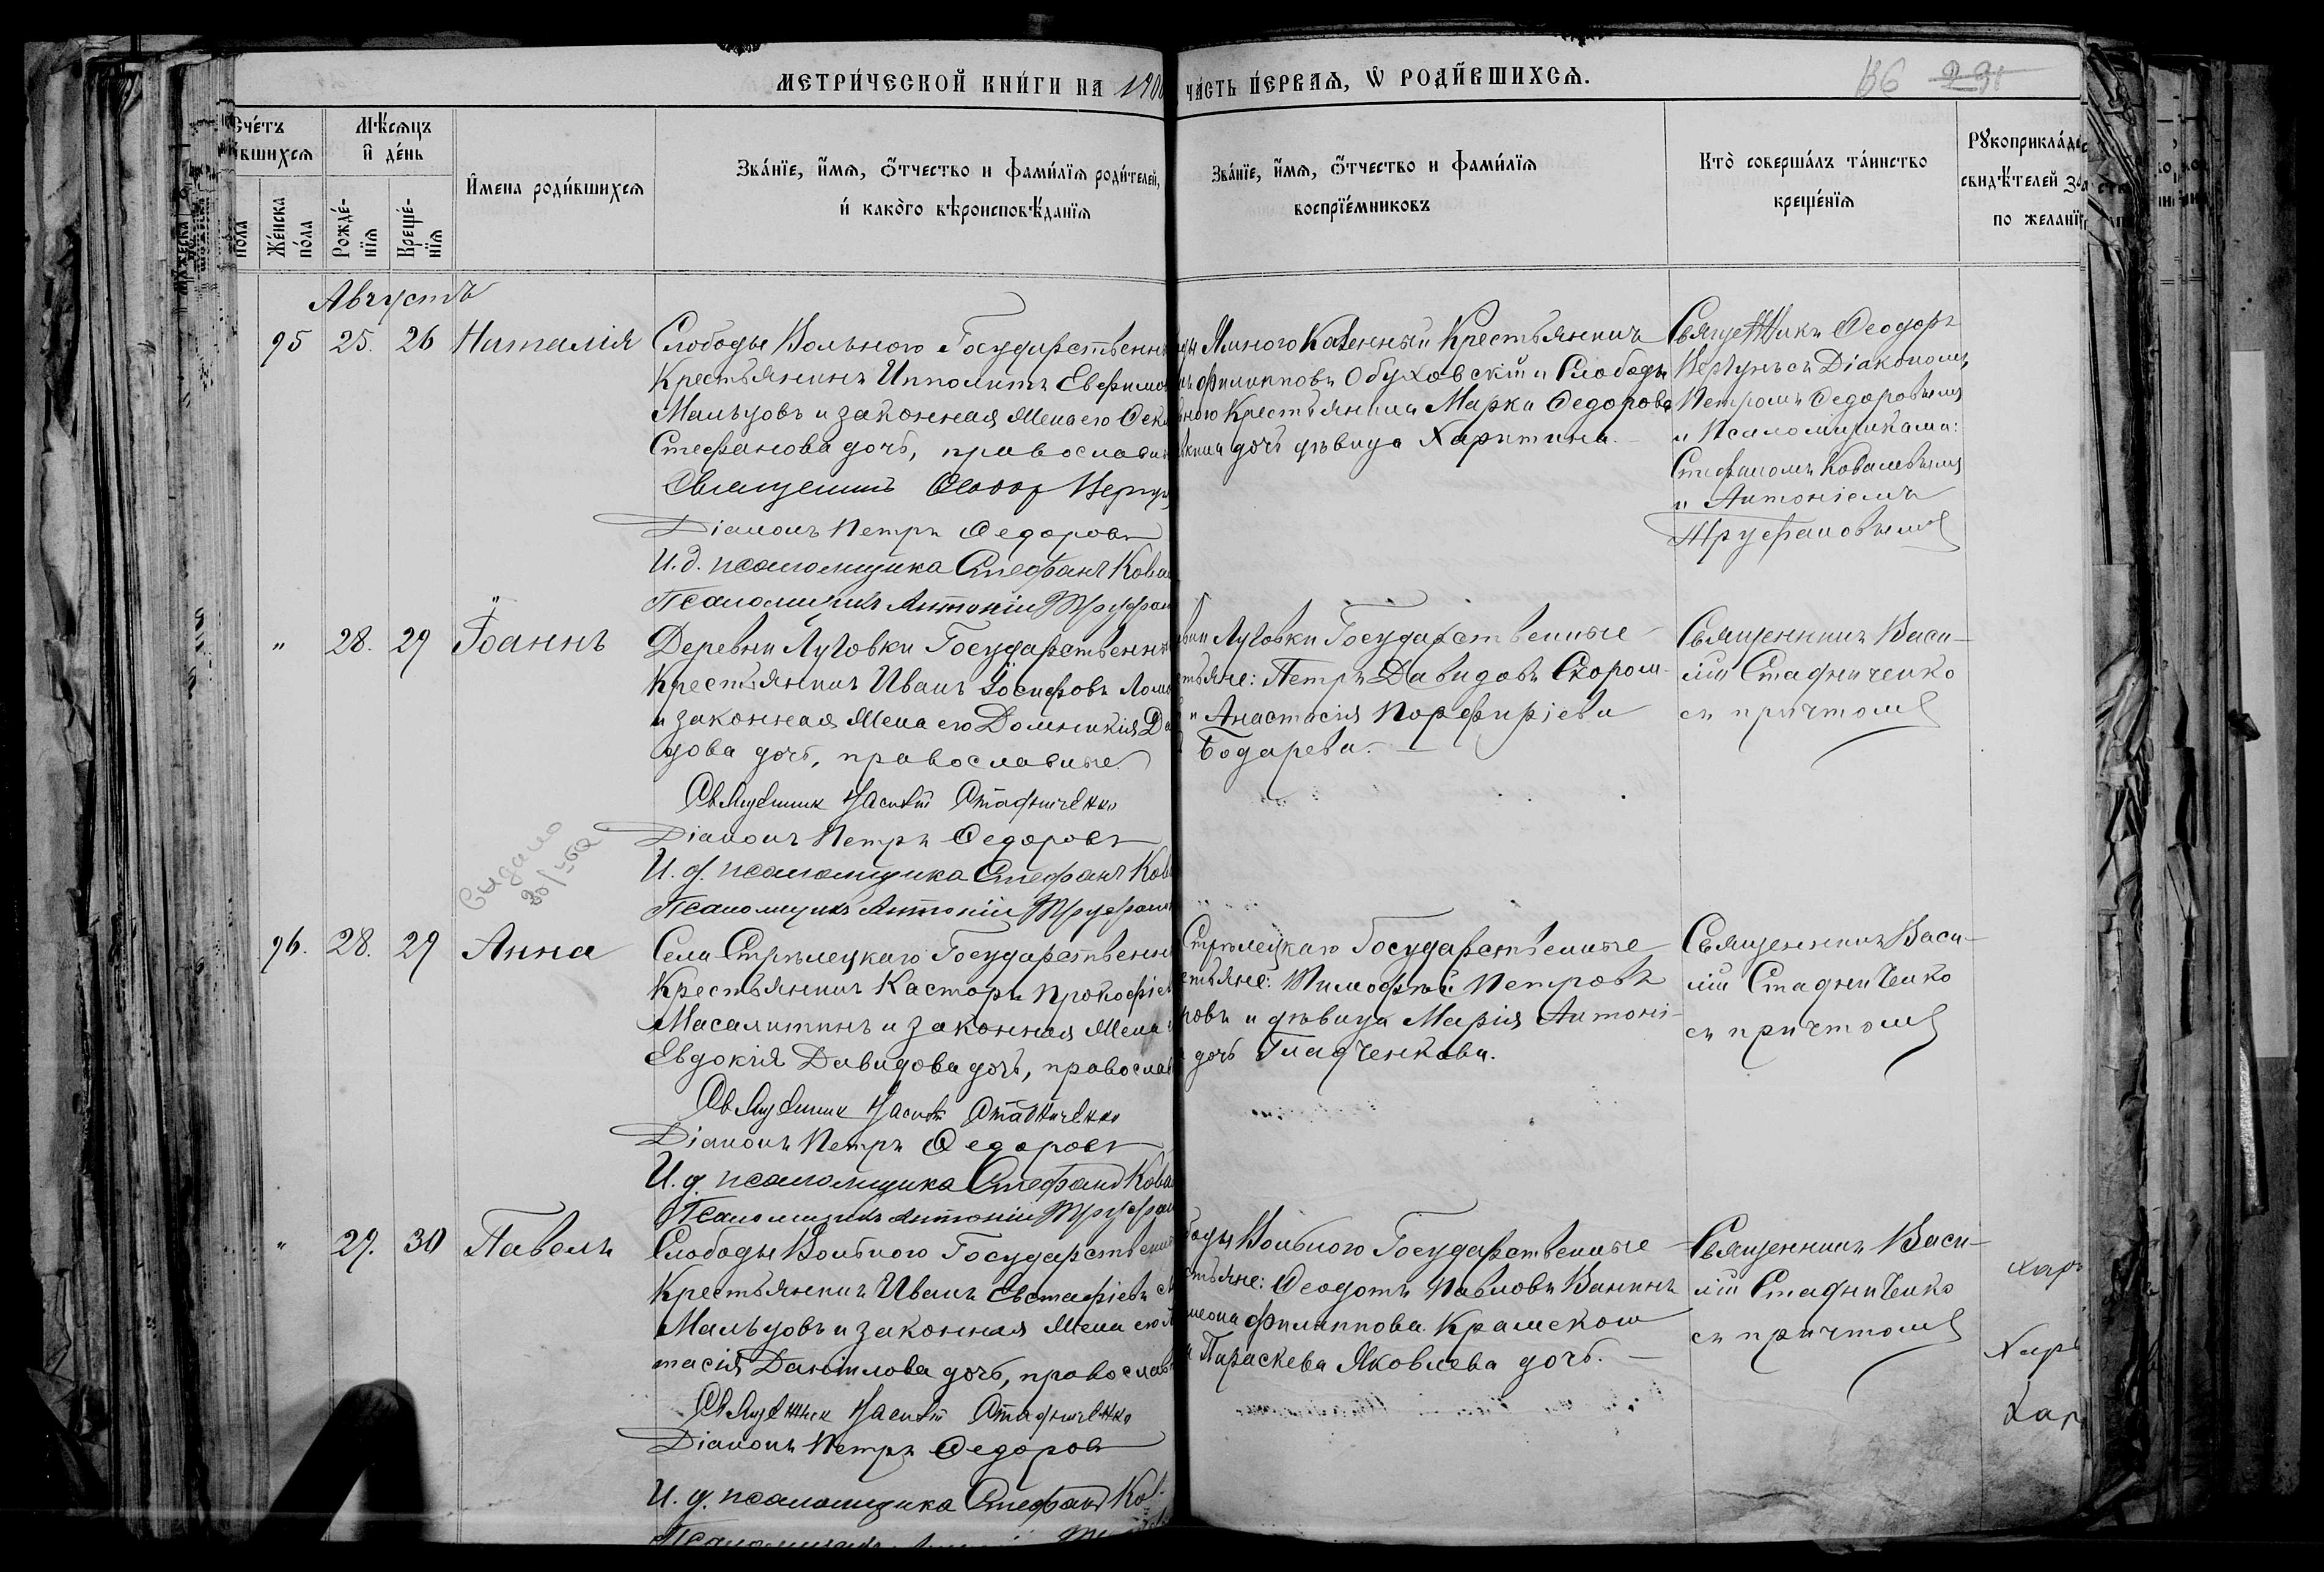 МЕТРИ́ЧЕСКОЙ КНИ́ГИ НА 1900
ЧА́СТЬ ПЕ́РВАЯ, Ѡ РОДИ́ВШИХСЯ.
136 291
Сче́тъ
и́вшихся
по́ла
Же́нска по́ла
Мѣ́сяцъ и҆ де́нь
Рожде́-нїя
Креще́-нїя
И҆мена роди́вшихся
Зва́нїе, и҆́мя, ѻ҆́тчество и фами́лїя роди́телей,
и҆ како́го вѣроисповѣ́данїя
Зва́нїе, и҆́мя, ѻ҆́тчество и фами́лїя
воспрїе́мниковъ
Кто̀ соверша́лъ та́инство
креще́нїя
Рꙋкоприкла́д
свидѣ́телей за
по жела́нї
Августъ
95 25. 26 Наталія
Слободы Вольного Государственн
Крестьянинъ Ипполитъ Евфимов
Мальцовъ и законная жена его Фек
Стефанова дочь, православн
Священникъ Ѳеодор Вергун
Діаконъ Петръ Ѳедоровъ
И.д. псаломщика Стефанъ Кова
Псаломщикъ Антоній Труфан
Казенный Крестьянинъ
Филипповъ Обуховскій и Слободы
ного Крестьянина Марка Ѳедорова
дочь дѣвица Харитина.
Священникъ Ѳеодоръ
Вергунъ съ Діакономъ
Петромъ Ѳедоровымъ
и Псаломщиками:
Стефаномъ Ковалевымъ
и Антоніемъ
Труфановымъ
" 28. 29 Іоаннъ
Деревни Луговки Государственн
Крестьянинъ Иванъ Іосифовъ Лома
и законная жена его Домникія Да
дова дочь, православные.
Священник Василій Стадниченко
Діаконъ Петръ Ѳедоровъ
И.д. псаломщика Стефанъ Ков
Псаломщикъ Антоній Труфан
вни Луговки Государственные
стьяне: Петръ Давидовъ Скором-
и Анастасія Порфиріева
Бодарева.
Священникъ Васи-
лій Стадниченко
съ причтомъ
Выдано
96. 28. 29 Анна
Села Стрѣлецкаго Государственн
Крестьянинъ Касторъ Прокофіев
Масалитинъ и законная жена
Евдокія Давидова дочь, православ
Священник Василій Стадниченко
Діаконъ Петръ Ѳедоровъ
И.д. псаломщика Стефанъ Кова
Псаломщикъ Антоній Труфан
Стрѣлецкаго Государственные
стьяне: Тимофѣй Петровъ
ровъ и дѣвица Марія Антоні-
дочь Гладченкова.
Священникъ Васи-
лій Стадниченко
съ причтомъ
" 29. 30 Павелъ
Слободы Вольного Государственн
Крестьянинъ Иванъ Евстафіевъ
Мальцовъ и законная жена его А
тасія Даніилова дочь, православ
Священник Василій Стадниченко
Діаконъ Петръ Ѳедоровъ
И.д. псаломщика Стефанъ Ков
боды Вольного Государственные
стьяне: Ѳеодотъ Павловъ Ванинъ
меона Филиппова Крамскаго
Параскева Яковлева дочь.
Священникъ Васи-
лій Стадниченко
съ причтомъ
Хар
Хар
Хар